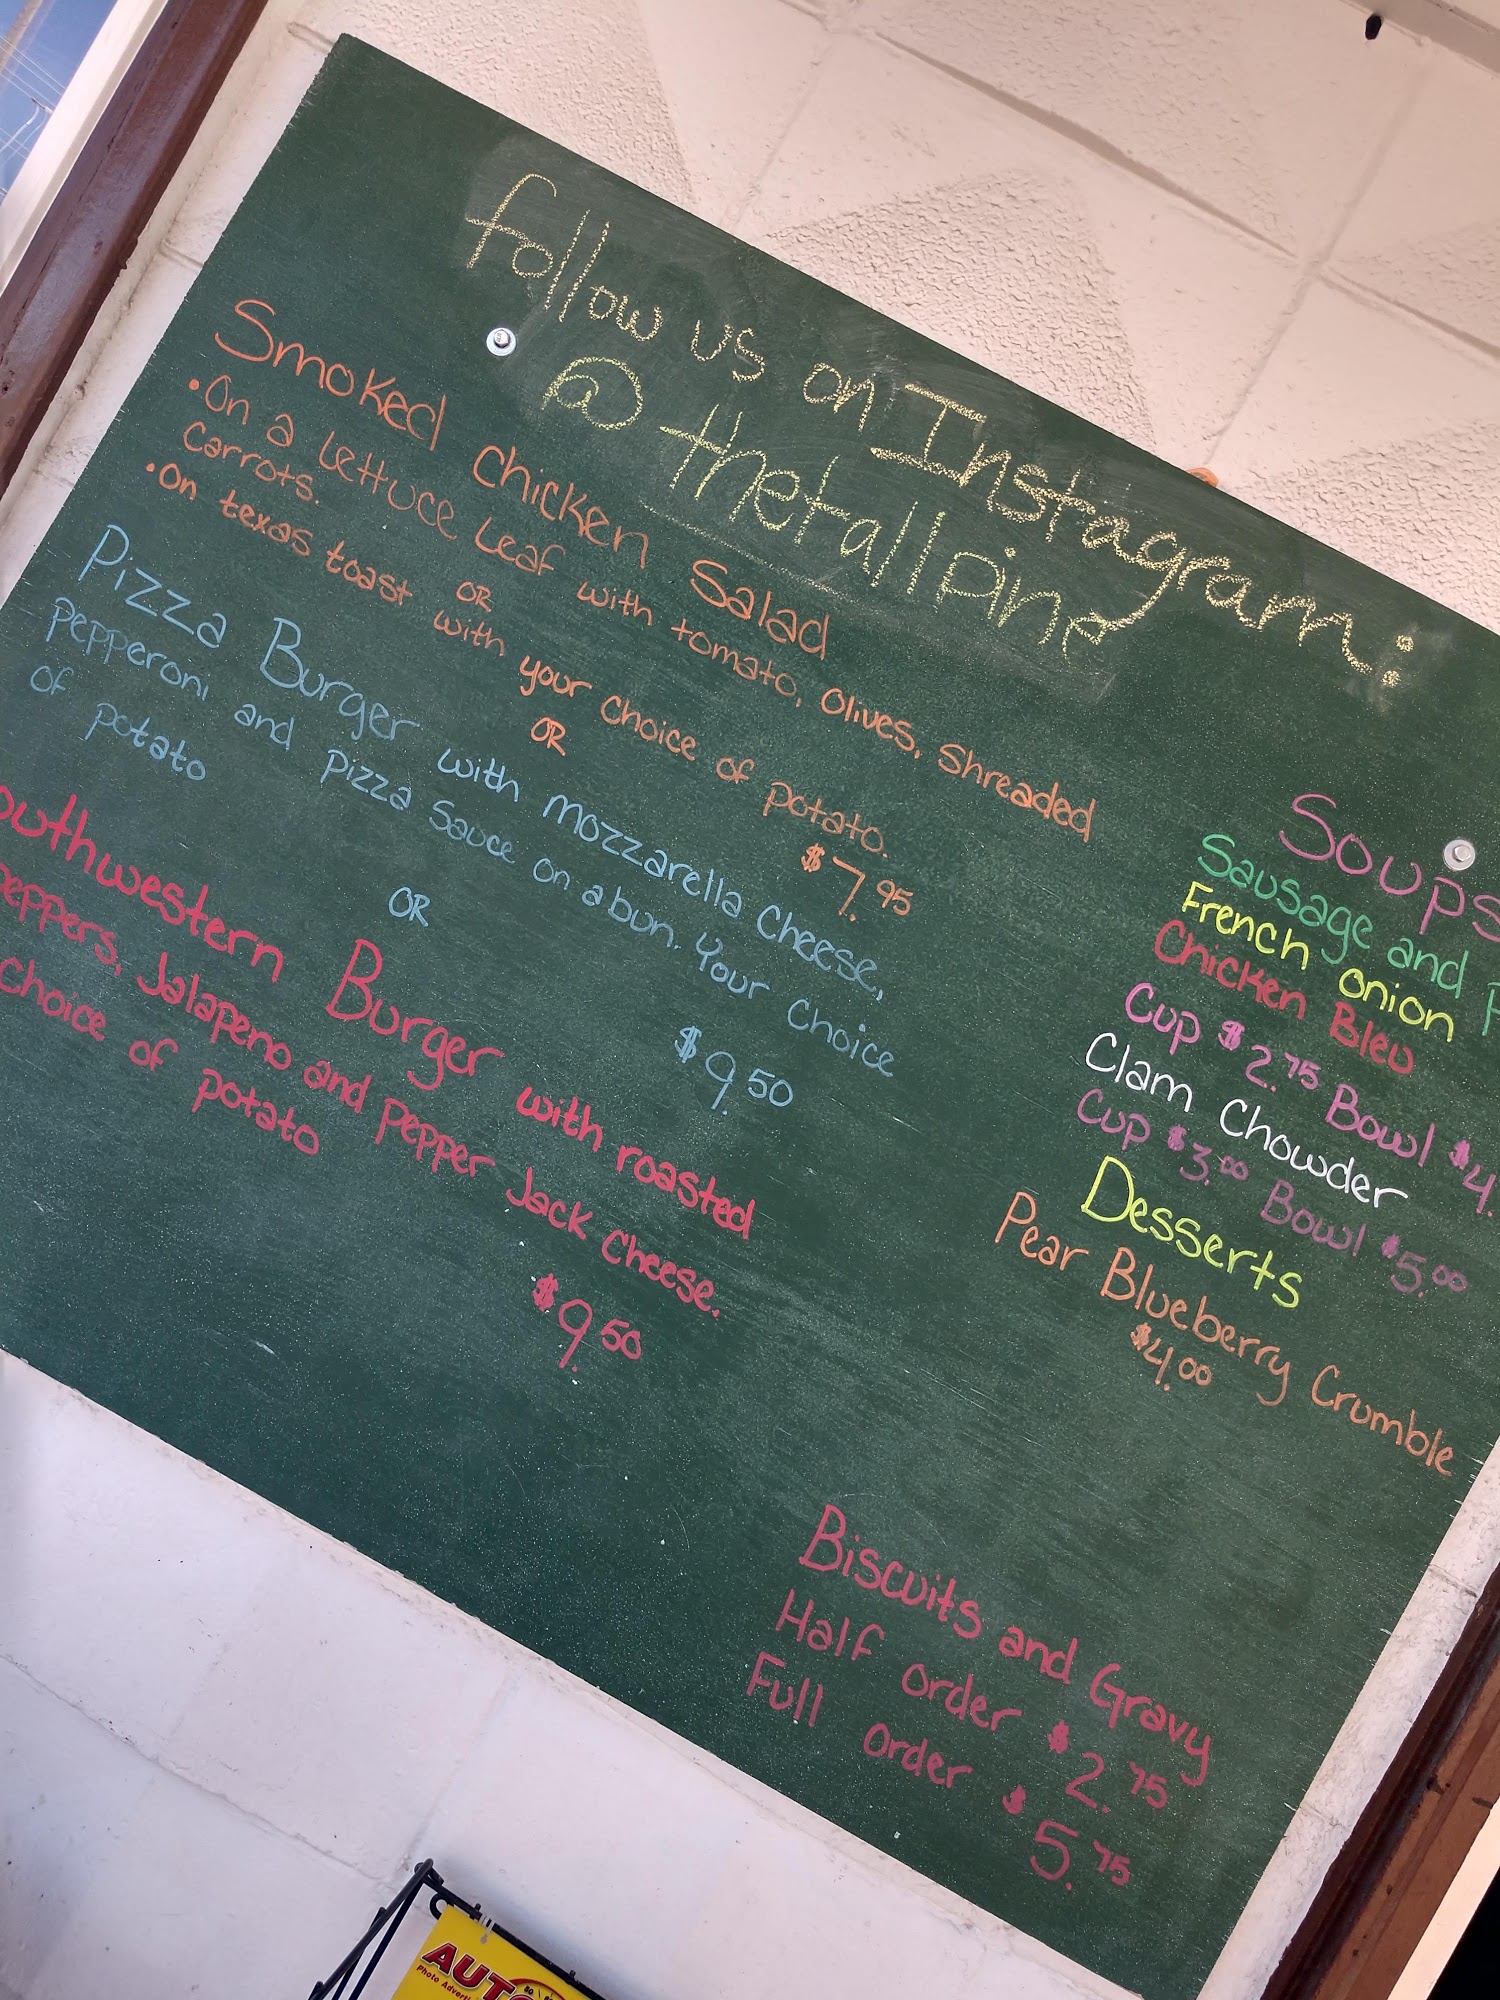 follow us on Instagram:
@thetallpine
Smoked Chicken Salad
•On a lettuce leaf with tomato, olives, shreaded
Carrots.
OR
•On texas toast with your choice of potato.
$7.95
OR
Pizza Burger with mozzarella cheese,
pepperoni and pizza sauce on a bun. Your choice
of potato
$9.50
OR
outhwestern Burger with roasted
peppers, Jalapeno and pepper Jack cheese.
Choice of potato
$9.50
Soups
Sausage and
French onion
Chicken Bleu
Cup $2.75 Bowl $4.
Clam Chowder
Cup $3.00 Bowl $5.00
Desserts
Pear Blueberry Crumble
$4.00
Biscuits and Gravy
Half order $2.75
Full order $5.75
AUTO